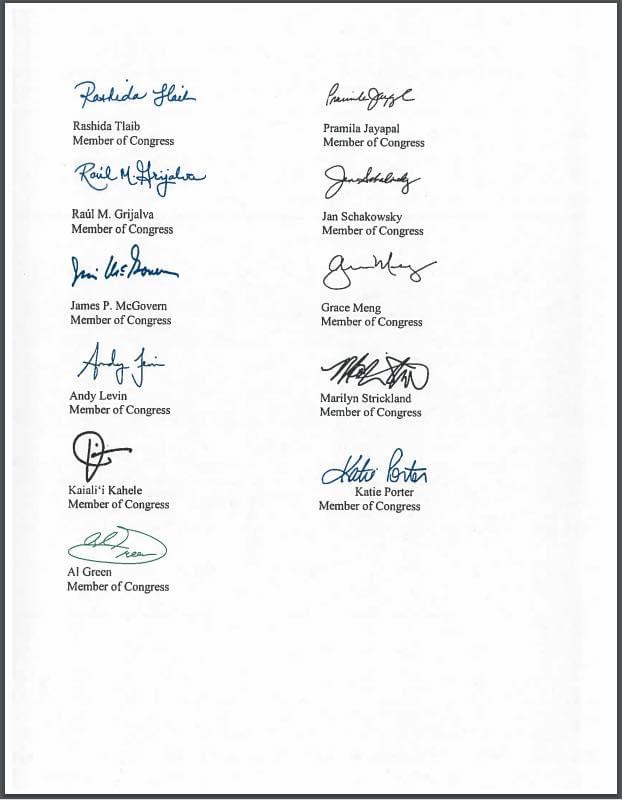 Rashida Tlaib
Rashida Tlaib
Member of Congress
Pramila Jayapal
Pramila Jayapal
Member of Congress
Raúl M. Grijalva
Raúl M. Grijalva
Member of Congress
Jan Schakowsky
Jan Schakowsky
Member of Congress
Jim McGovern
James P. McGovern
Member of Congress
Grace Meng
Grace Meng
Member of Congress
Andy Levin
Andy Levin
Member of Congress
Marilyn Strickland
Member of Congress
Kaiali‘i Kahele
Member of Congress
Katie Porter
Katie Porter
Member of Congress
Al Green
Al Green
Member of Congress